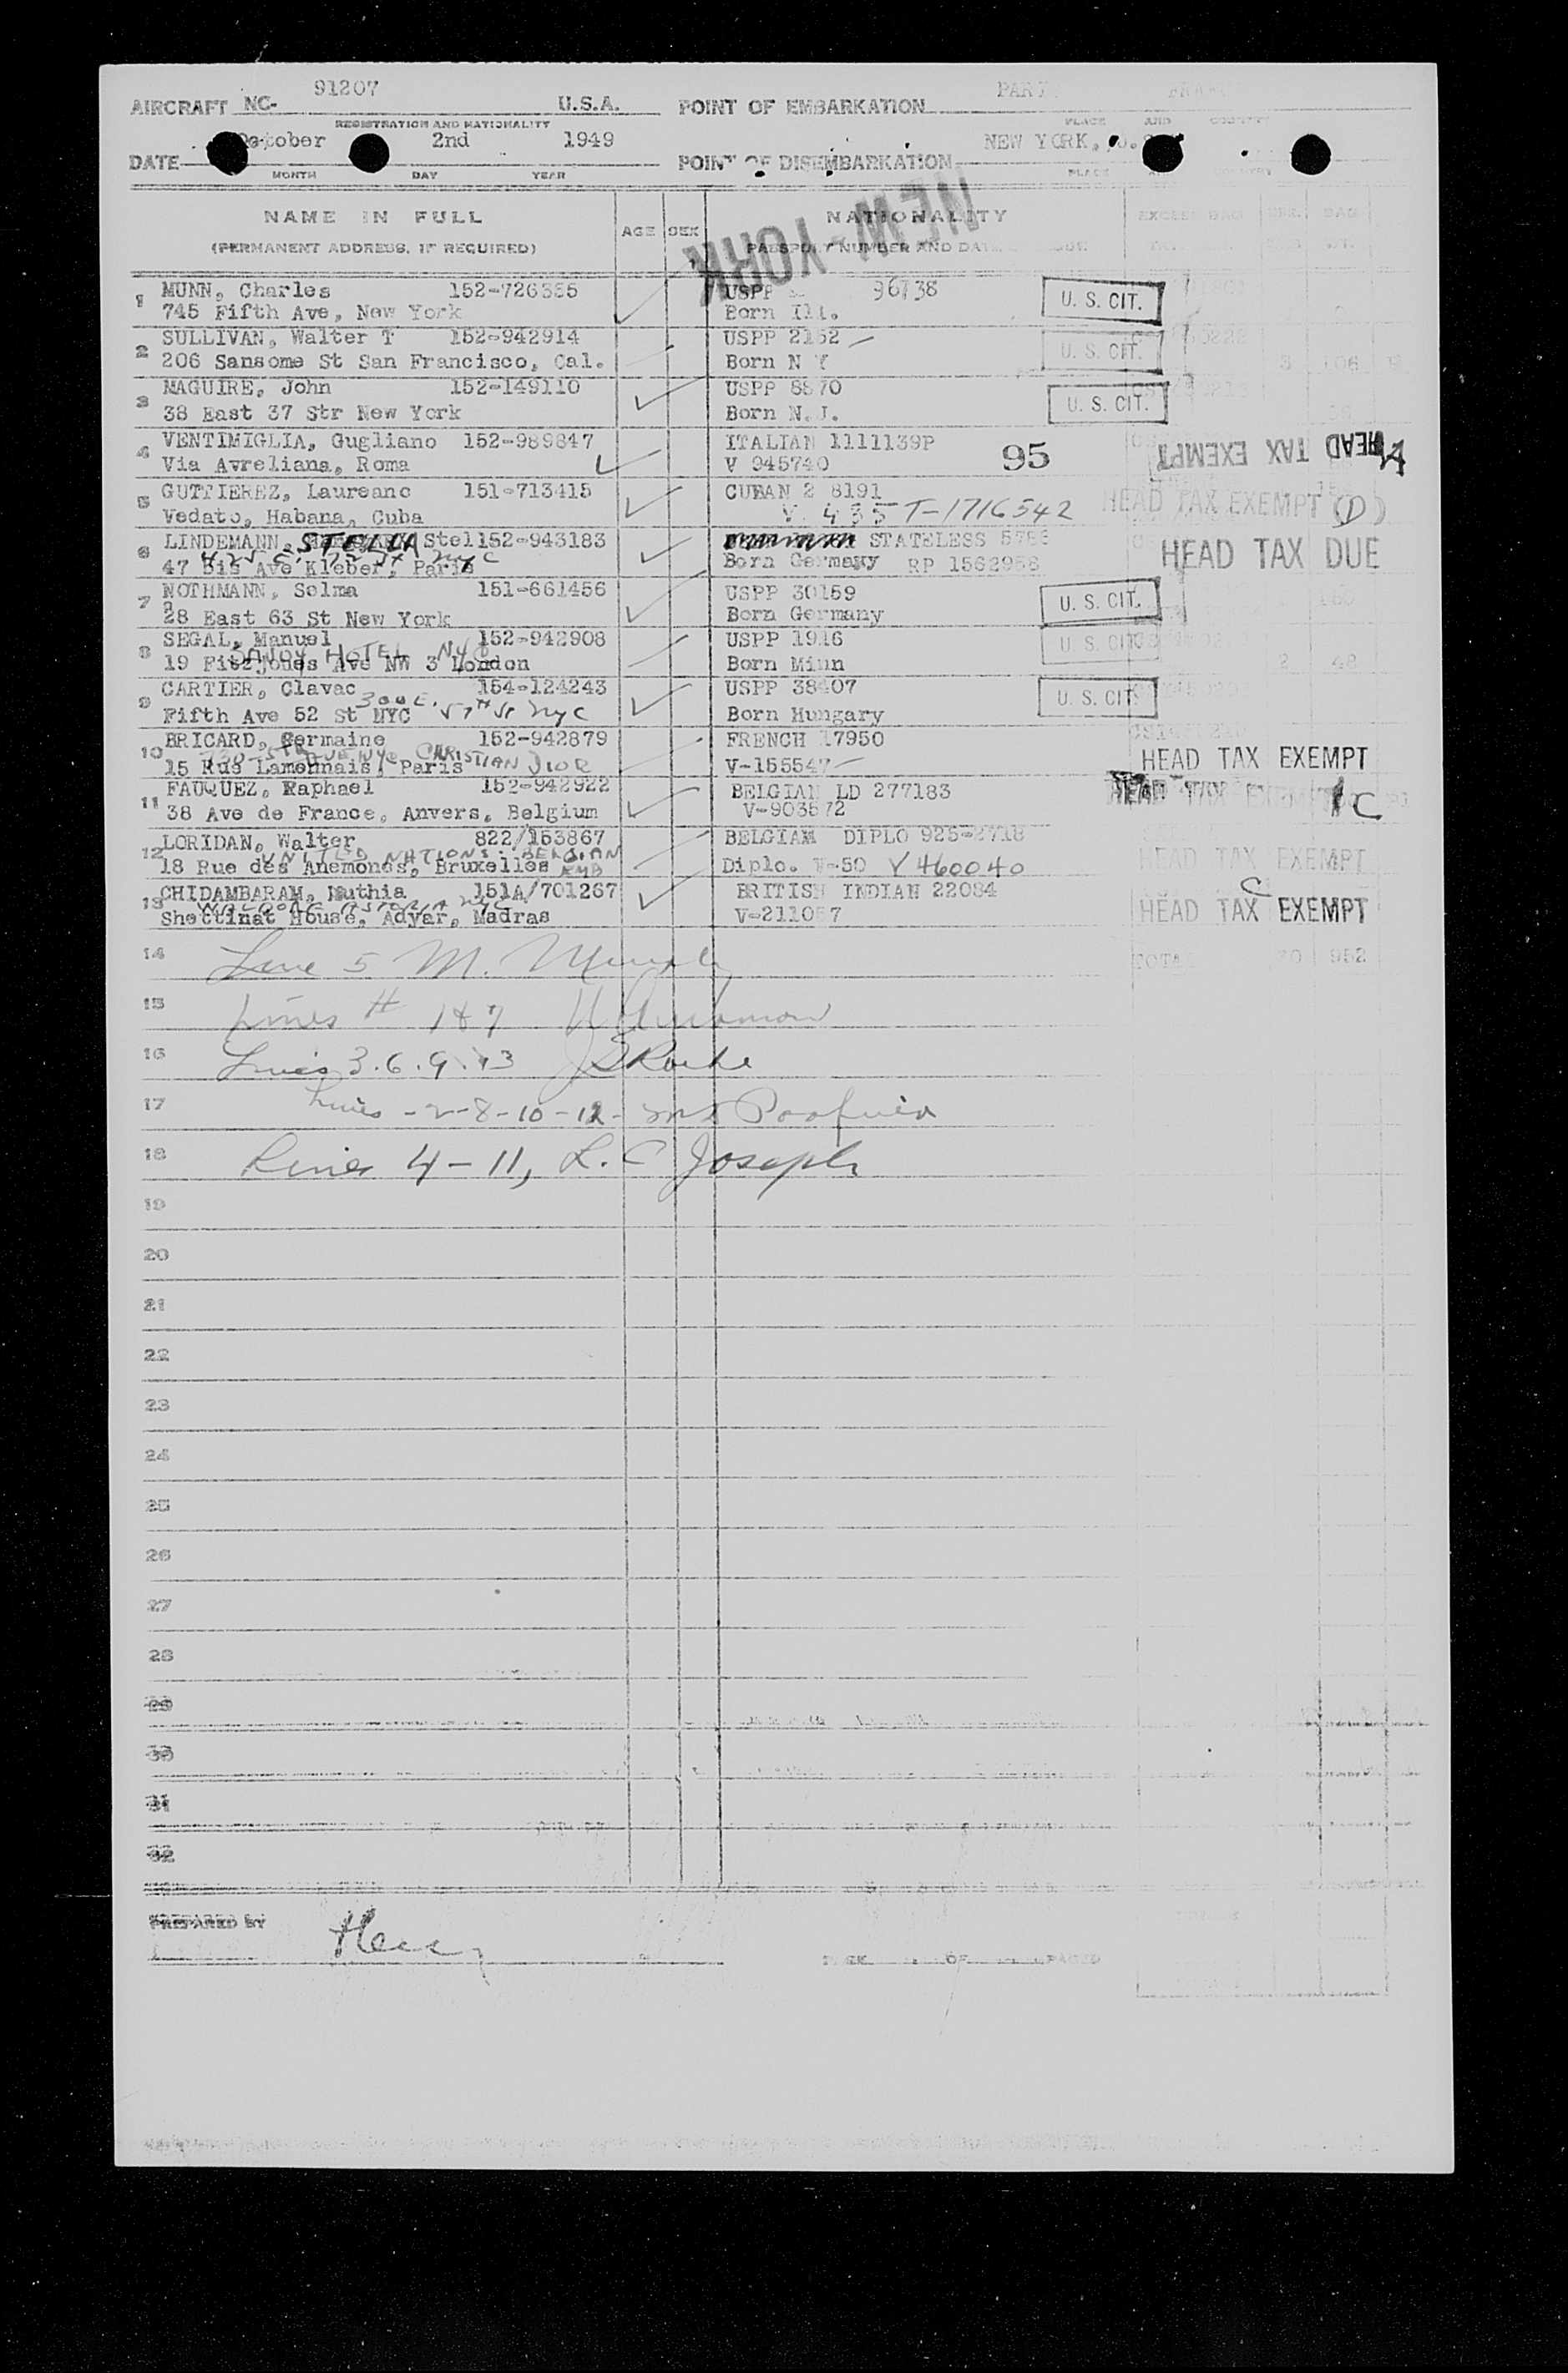 91207
AIRCRAFT NC- U.S.A. POINT OF EMBARKATION
REGISTRATION AND NATIONALITY PLACE AND COUNTRY
October 2nd 1949 NEW YORK,
DATE POINT OF DISEMBARKATION
MONTH DAY YEAR PLACE COUNTRY
NEW YORK
NAME IN FULL AGE SEX NATIONALITY EXCESS BAG
(PERMANENT ADDRESS, IF REQUIRED) PASSPORT NUMBER AND
1 MUNN, Charles 152-726385 USPP 96738 U. S. CIT.
745 Fifth Ave, New York Born Ill.
2 SULLIVAN, Walter T 152-942914 USPP 2152 U. S. CIT.
206 Sansome St San Francisco, Cal. Born N Y 106
3 MAGUIRE, John 152-149110 USPP 8870 U. S. CIT.
38 East 37 Str New York Born N.J.
4 VENTIMIGLIA, Gugliano 152-989847 ITALIAN 1111139P HEAD TAX EXEMPT
Via Avreliana, Roma V 945740 95
5 GUTTIEREZ, Laureano 151-713415 CUBAN 2 8191 HEAD TAX EXEMPT (D)
Vedato, Habana, Cuba V. 435 T-1716542
6 LINDEMANN, STELLA Stel 152-943183 STATELESS HEAD TAX DUE
47 Bis Ave Kleber, Paris NYC Born Germany RP 1562958
7 NOTHMANN, Selma 151-661456 USPP 30159 U. S. CIT.
28 East 63 St New York Born Germany
8 SEGAL, Manuel 152-942908 USPP 1916 U. S. CIT
SAVOY HOTEL NYC
19 Fitzjohns Ave NW 3 London Born Minn 2 48
9 CARTIER, Clavac 154-124243 USPP 38407 U. S. CIT.
300 E. 57th St NYC
Fifth Ave 52 St NYC Born Hungary
10 BRICARD, Germaine 152-942879 FRENCH 17950
730-5th AVE NYC CHRISTIAN DIOR
15 Rue Lamennais, Paris V-155547 HEAD TAX EXEMPT
11 FAUQUEZ, Raphael 152-942922 BELGIAN LD 277183 HEAD TAX EXEMPT C
38 Ave de France, Anvers, Belgium V-903572
12 LORIDAN, Walter 822/153867 BELGIAM DIPLO 925-2718
UNITED NATIONS. BELGIAN EMB
18 Rue des Anemones, Bruxelles Diplo. V-50 V460040 HEAD TAX EXEMPT
13 CHIDAMBARAM, Muthia 151A/701267 BRITISH INDIAN 22084 C
WALDORF ASTORIA NYC
Shettinat House, Adyar, Madras V-211057 HEAD TAX EXEMPT
14 Line 5 M. Murphy TOTAL 952
15 Lines # 1&7
16 Lines 3.6.9.13
17 Lines -2-8-10-12-
18 Lines 4-11, L. C Joseph
19
20
21
22
23
24
25
26
27
28
29
30
31
32
PREPARED BY
OF PAGES